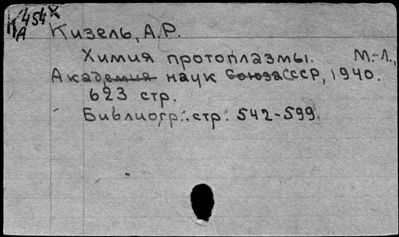 К 454х
А
Кизель, А.Р.
Химия протоплазмы. М.-Л.,
Академия наук Союза ССР, 1940.
623 стр.
Библиогр.: стр. 542-599.